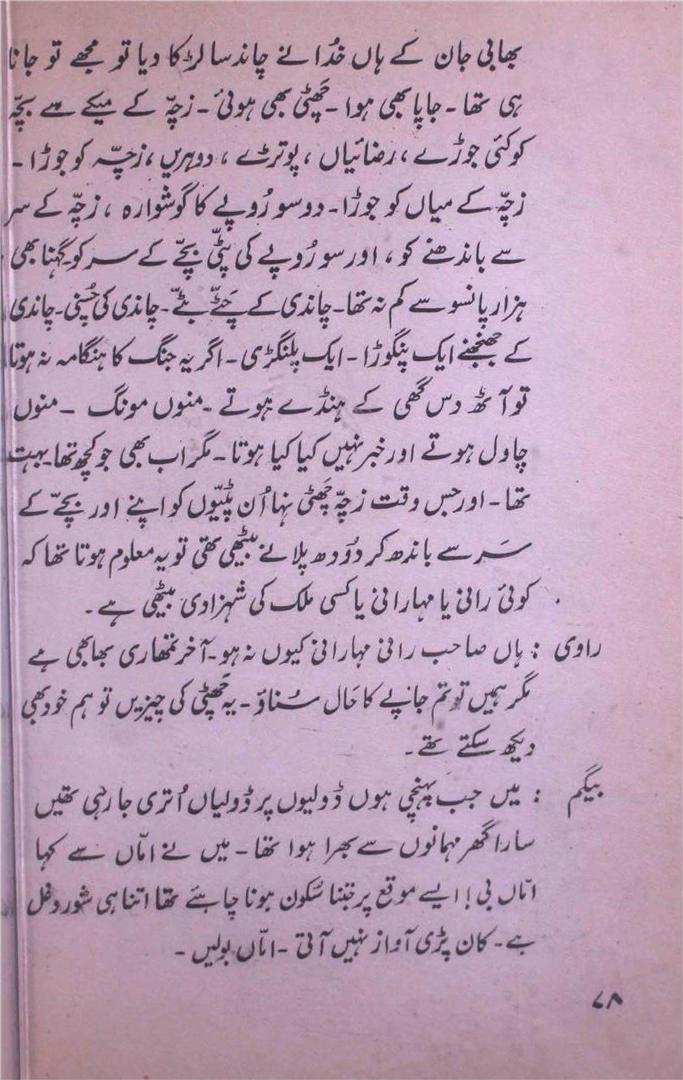 بھابی جان کے ہاں خُدا نے چاند سا لڑکا دیا تو مجھے تو جانا
ہی تھا۔ جاپا بھی ہوا۔ چَھٹی بھی ہوئی۔ زچّہ کے میکے سے بچّہ
کو کئی جوڑے، رضائیاں، پوتڑے، دوہریں، زچّہ کو جوڑا۔
زچّہ کے میاں کو جوڑا۔ دو سو رُوپے کا گوشوارہ، زچّہ کے سر
سے باندھنے کو، اور سو رُوپے کی پٹّی بچّے کے سر کو۔ گہنا بھی
ہزار پانسو سے کم نہ تھا۔ چاندی کے چَٹّے بٹّے۔ چاندی کی چُسنی۔ چاندی
کے جھنجھنے ایک پنگوڑا۔ ایک پلنگڑی۔ اگر یہ جنگ کا ہنگامہ نہ ہوتا
تو آٹھ دس گھی کے ہنڈے ہوتے۔ منوں مونگ ۔ منوں
چاول ہوتے اور خبر نہیں کیا کیا ہوتا۔ مگر اب بھی جو کچھ تھا بہت
تھا۔ اور جس وقت زچّہ چَھٹی نہا اُن پٹیّوں کو اپنے اور بچّے کے
سَر سے باندھ کر دُودھ پلانے بیٹھی تھی تو یہ معلوم ہوتا تھا کہ
کوئی رانی یا مہارانی یا کسی ملک کی شہزادی بیٹھی ہے۔
راوی : ہاں صاحب رانی مہارانی کیوں نہ ہو۔ آخر تمھاری بھابھی ہے
مگر ہمیں تو تم جاپے کا حَال سُناؤ۔ یہ چَھٹی کی چیزیں تو ہم خود بھی
دیکھ سکتے تھے۔
بیگم : میں جب پہنچی ہوں ڈولیوں پر ڈولیاں اُتری جا رہی تھیں
سارا گھر مہمانوں سے بھرا ہوا تھا۔ میں نے امّاں سے کہا
امّاں بی! ایسے موقع پر جتنا سُکون ہونا چاہئے تھا اتنا ہی شور و غل
ہے۔ کان پڑی آواز نہیں آتی۔ امّاں بولیں۔
۷۸